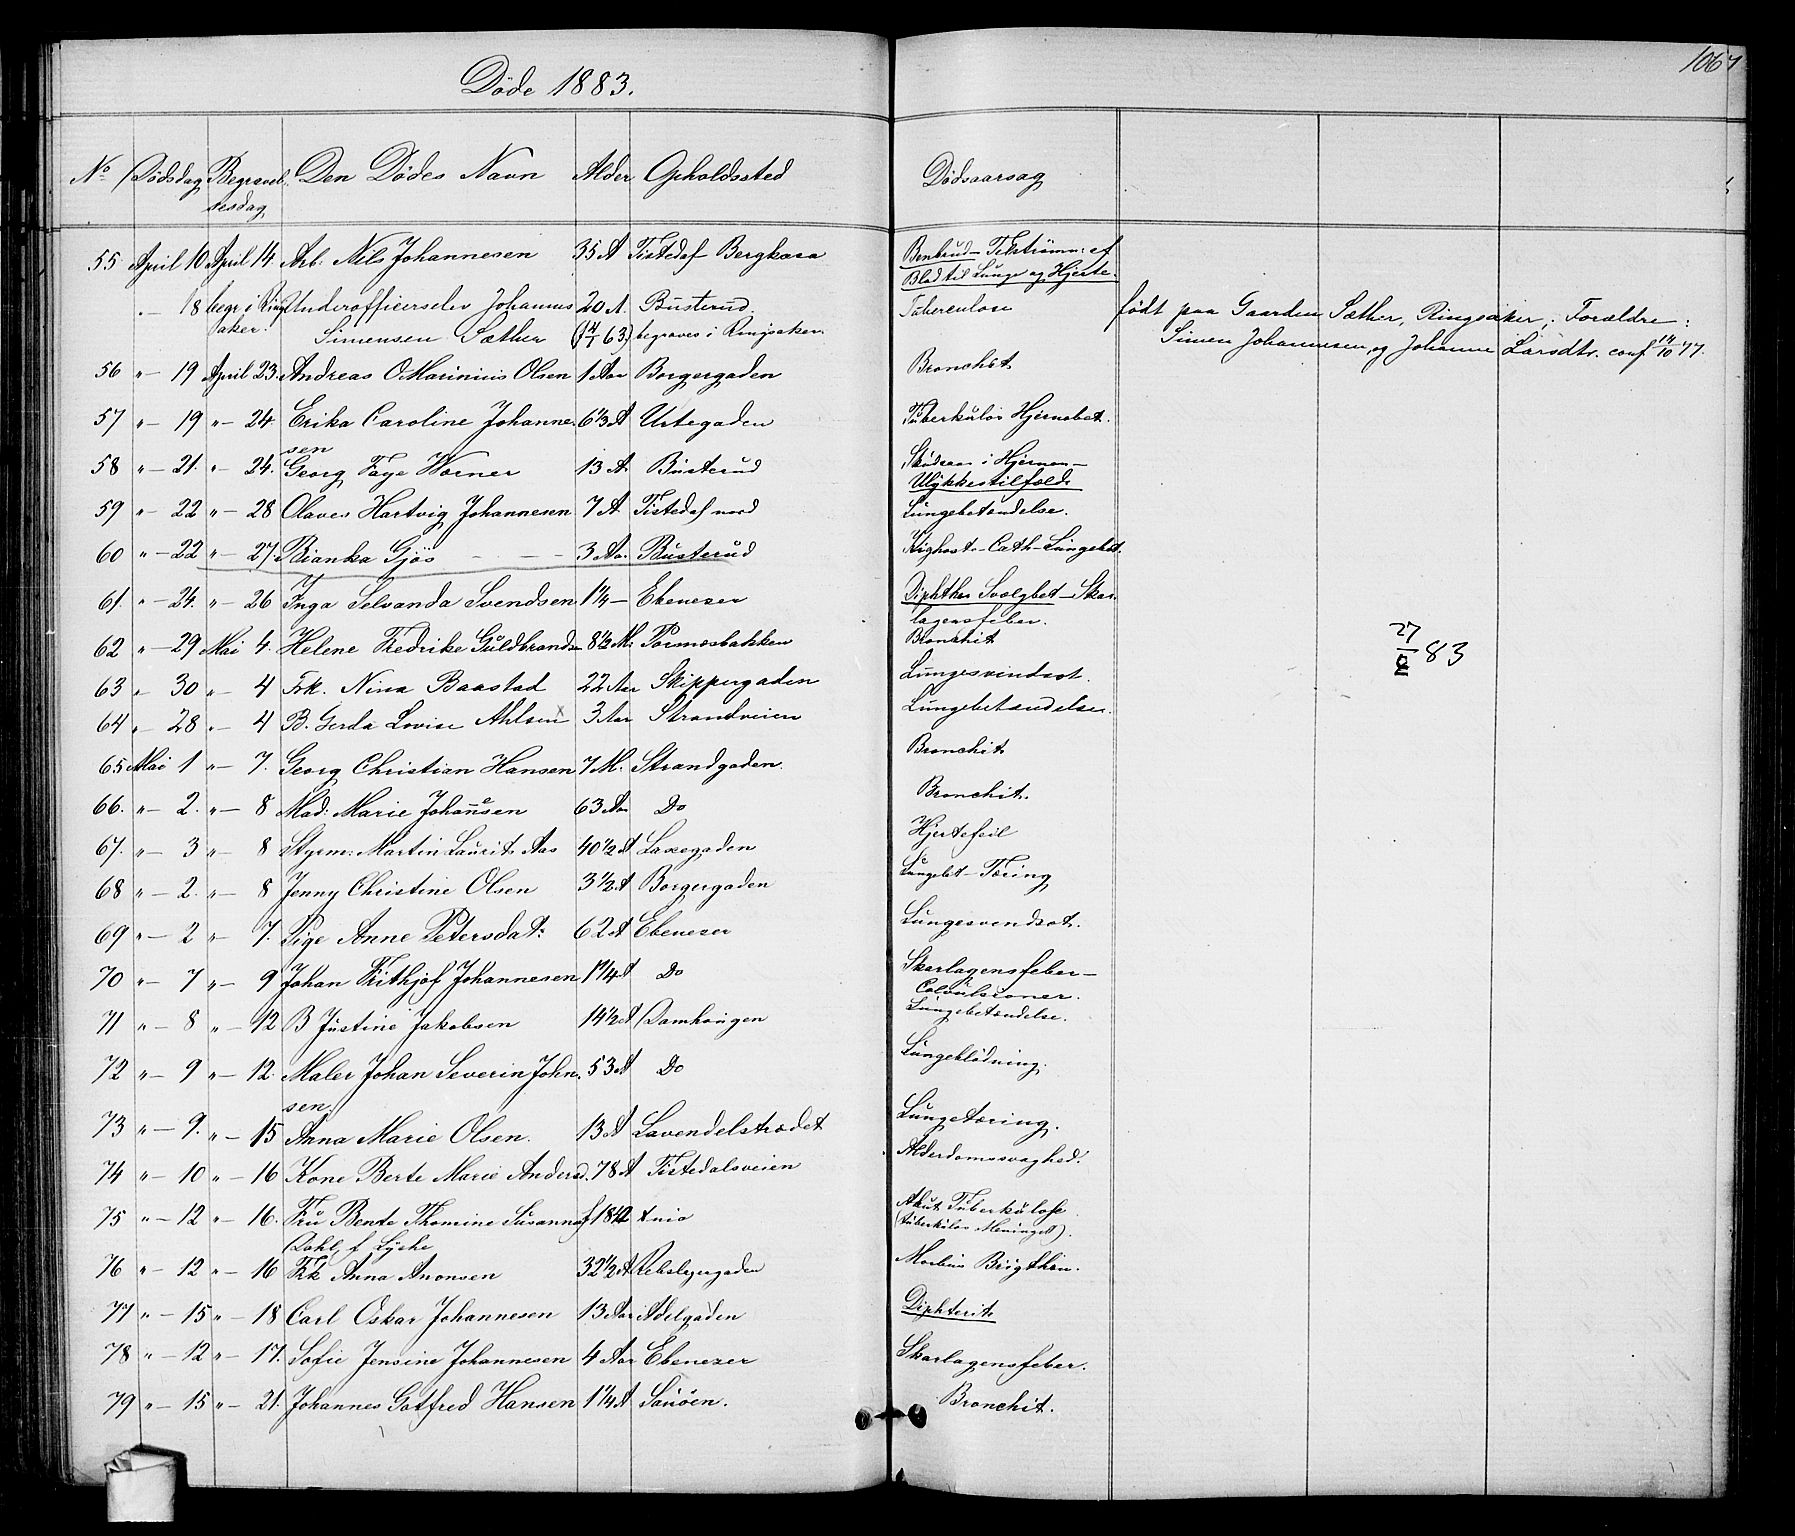 106
Døde 1883.
No Dødsdag Begravelsesdag Den Dødes Navn Alder Opholdssted Dødsaarsag
55 April 10 April 14. Arb. Nils Johannesen 35 A Tistedal Bergkasa Benbrud - Tilstrømn: af
Blod til Lunge og Hjerte.
" - 18 begr i Ring- Underofficerselev Johannes 20 A. Busterud. Tuberculose født paa Gaarden Sæther, Ringsaker; Forældre:
saker. Simensen Sæther (14/1 63) begraves i Ringsaker. Simen Johannesen og Johanne Larsdtr. conf 14/10 77.
56 " - 19 April 23. Andreas O Marinius Olsen 1 Aar Borgergaden Bronchit
57 " - 19 " - 24. Erika Caroline Johanne 6 1/3 A Urtegaden Tuberkuløs Hjernebet.
sen
58 " - 21. " - 24. Georg Faye Worner 13 A. Busterud Skudsaar i Hjernen -
Ulykkestilfælde
59 " - 22 " - 28 Olaves Hartvig Johannesen 7 A Tistedal nord Lungebetændelse.
60 " - 22 " - 27. Bianka Gjøs - - - 3 Aar. Busterud Kighoste - Cath - Lungebet.
61. " - 24. " - 26 Inga Selvanda Svendsen 1 1/4 - Ebenezer Diphther Svælgbet - Skar
lagensfeber.
62 " - 29 Mai 4. Helene Fredrike Guldbrands 8 1/2 M. Pormesbakken Bronchit
27/5 83
63 " 30 " - 4 Frk. Nina Baastad 22 Aar Skippergaden Lungesvindsot.
64 " - 28 " - 4 B. Gerda Lovise Ahlsen x 3 Aar Strandveien Lungebetændelse.
65 Mai 1 " - 7. Georg Christian Hansen 7 M. Strandgaden. Bronchit
66. " - 2. " - 8 Mad: Marie Johannesen 63 Aar Do Bronchit.
67. " - 3 " - 8 Styrm: Martin Laurits Aas 40 1/2 A Laxegaden Hjertefeil
68 " - 2. " - 8 Jenny Christine Olsen 3 1/2 A Borgergaden Lungebet - Tæring
69 " - 2 " - 7. Pige Anne Petersdat: 62 A Ebenezer Lungesvendsot.
70 " - 7 " - 9 Johan Frithjof Johannesen 1 1/4 A Do Skarlagensfeber -
Colvulsioner.
71 " - 8 " - 12 B Justine Jakobsen 14 1/2 A Damhaugen Lungebetændelse.
72 " - 9 " - 12. Maler Johan Severin John. 53 A Do Lungeblødning.
sen.
73 " - 9. " - 15 Anna Marie Olsen. 13 A Lavendelstrædet Lungetæring.
74 " - 10 " - 16 Kone Berte Marie Andersd. 78 A Tistedalsveien Alderdomssvaghed.
75 " - 12 " - 16. Fru Bente Thomine Susanna f 1842 Akut Tuberkulose
Dahl f. Lyche (tuberkuløs Meninget).
76 " - 12 " - 16 Frk Anna Anonsen 32 1/2 A Rebslagergaden Morbus Brigthii.
77 " - 15 " - 18 Carl Oskar Johannesen 13 Aar Adelgaden Diphterit
78 " - 12 " - 17. Sofie Jensine Johannesen 4 Aar Ebenezer Skarlagensfeber.
79 " - 15 " - 21. Johannes Gotfred Hansen 1 1/4 A Sauøen. Bronchit.